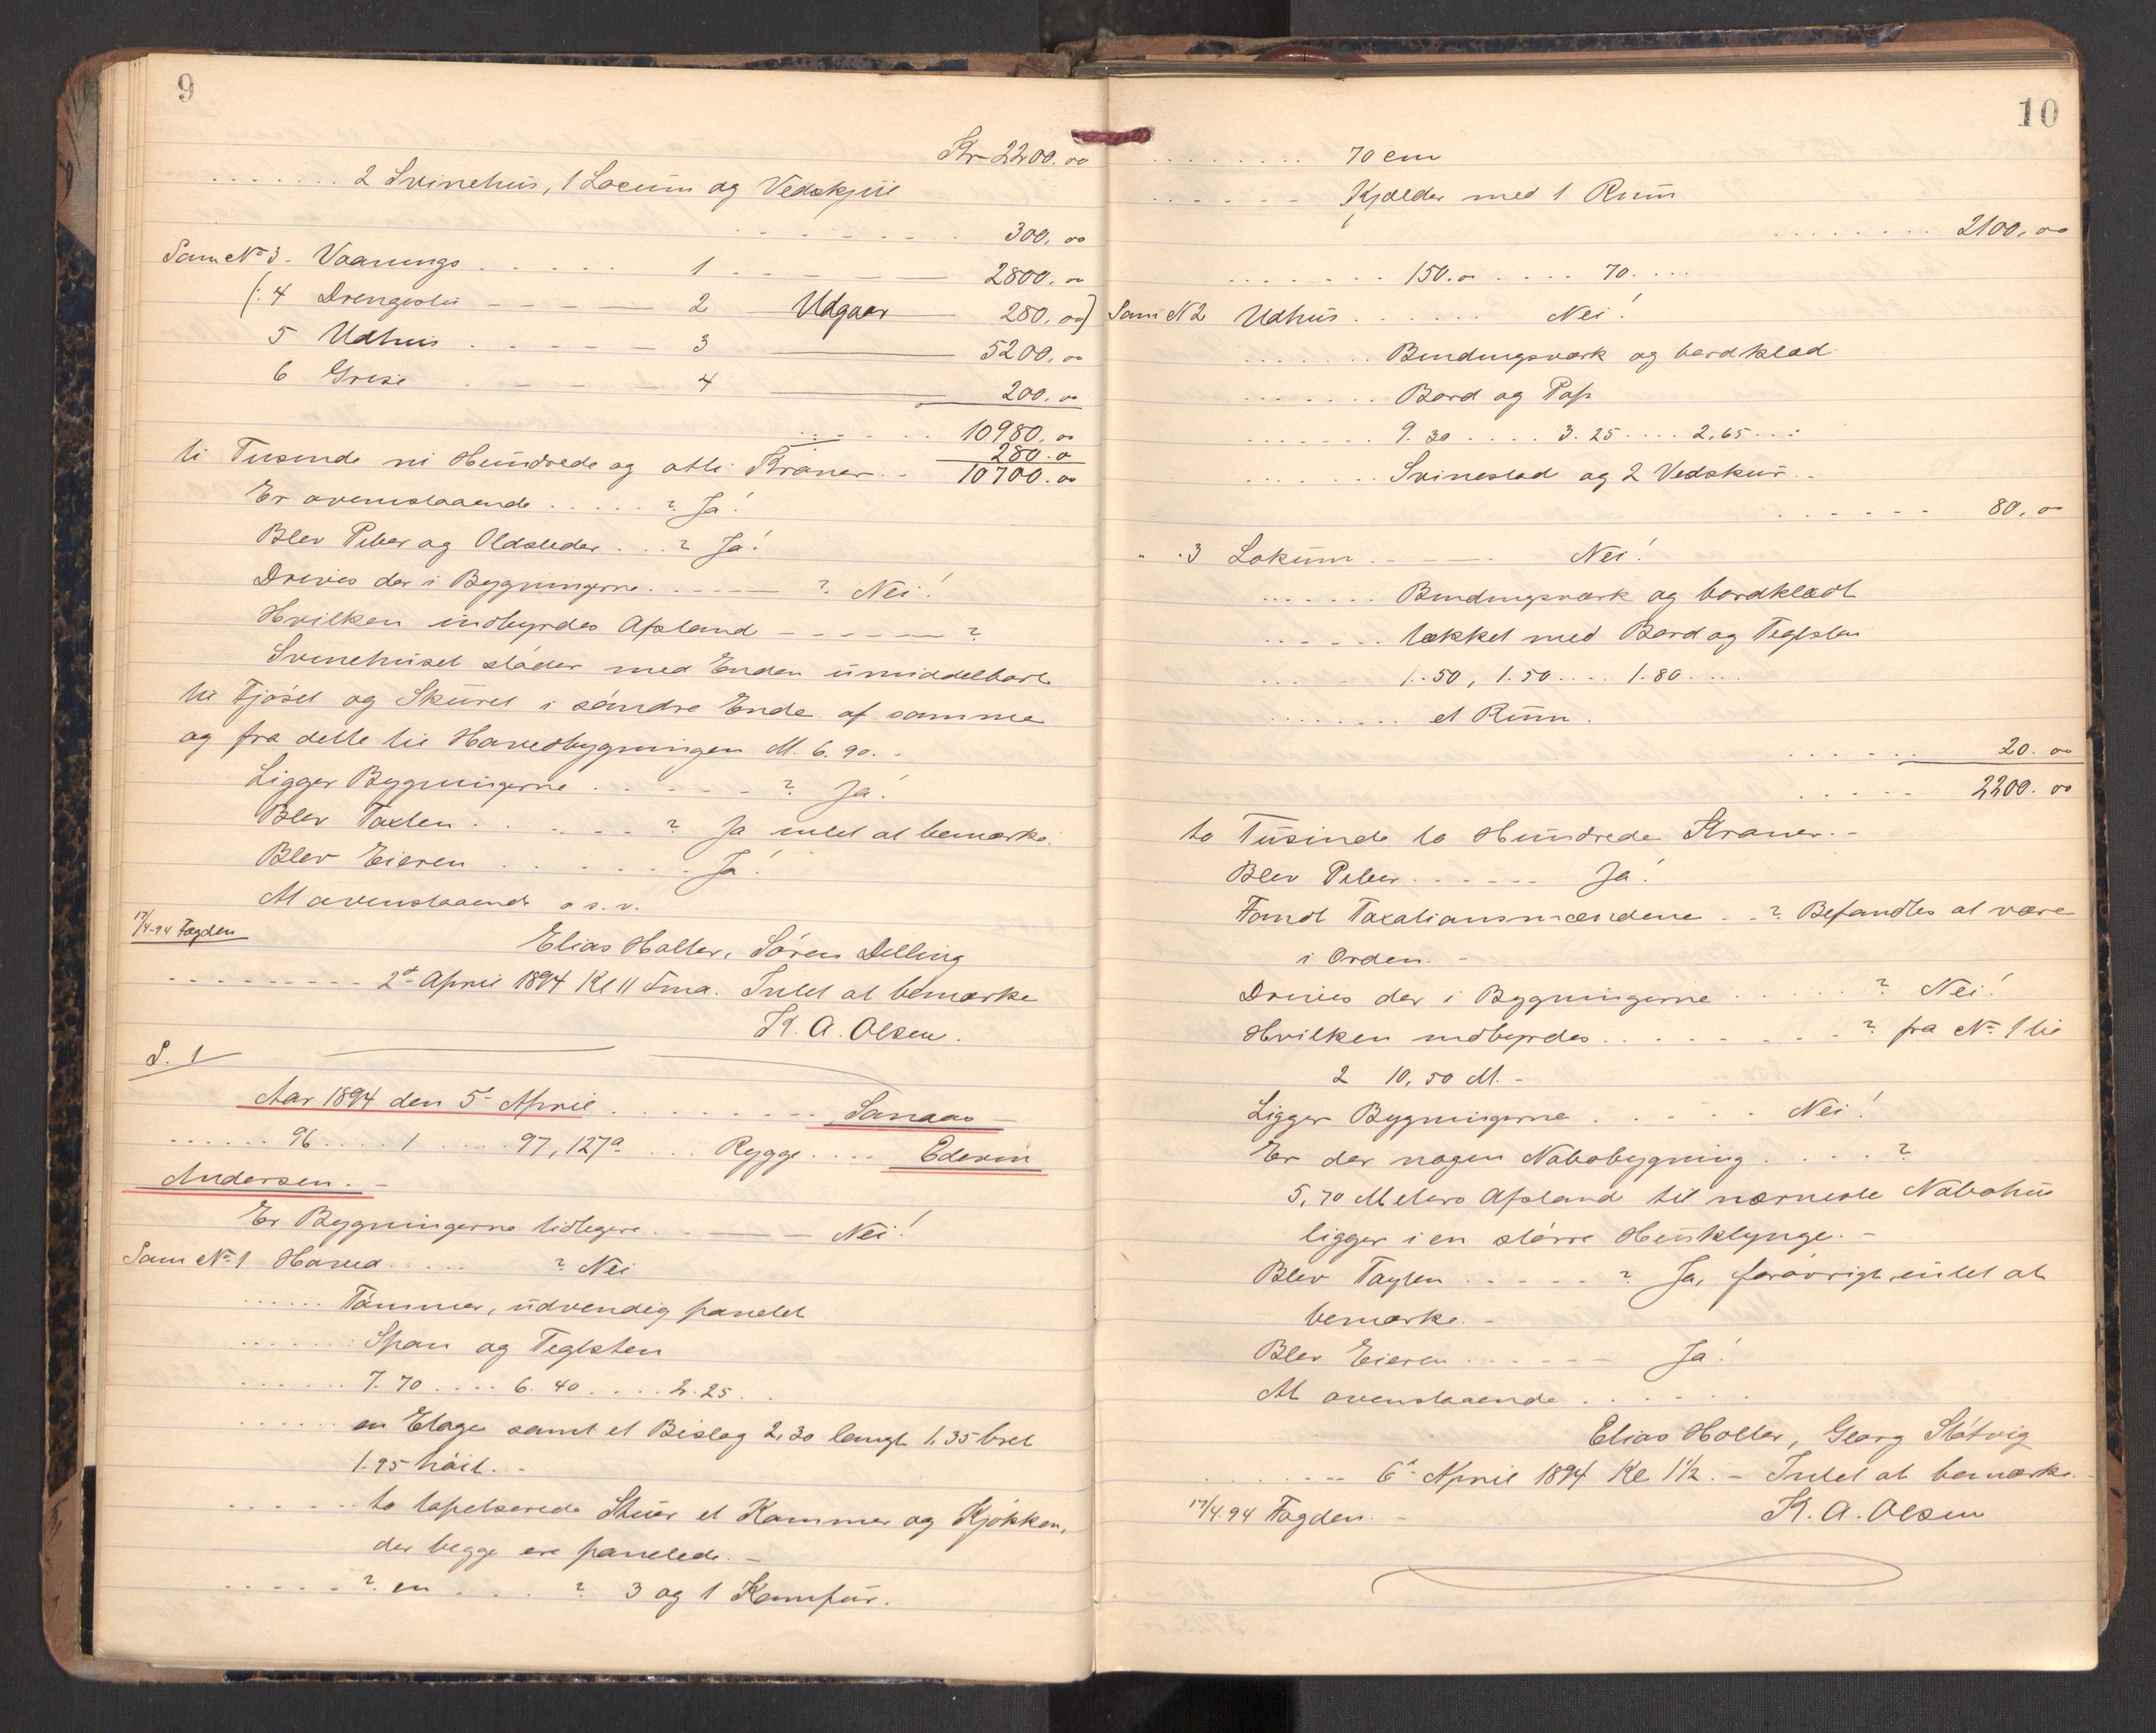 9
Kr 2200.00
. . . . . . . 2 Svinehus, 1 Locum og Vedskjul
. . . . . . . 300.00
Som No 3. Vaanings . . . . . 1 . . . . 2800.00
(: 4 Drengestu — — — — 2 — Udgaar — 280.00)
5 Udhus . . . . — 3 — 5200.00
6 Grise . — — — 4 — 200.00
. . . . . . 10980.00
280.00
ti Tusinde ni Hundrede og otti Kroner. — 10700.00
Er ovenstaaende . . . . . ? Ja!
Blev Piber og Ildsteder . . . ? Ja!
Drives der i Bygningerne . . — — ? Nei!
Hvilken indbyrdes Afstand — — — — — ?
Svinehuset støder med Enden umiddelbart
til Fjøset og Skuret i søndre Ende af samme
og fra dette til Hovedbygningen M. 6.90. -
Ligger Bygningerne . . . . . . ? Ja!
Blev Taxten . . . . . . ? Ja intet at bemærke.
Blev Eieren . . . . . . . Ja!
At ovenstaaende o s. v.
17/4-94 Fogden
Elias Holter, Søren Dilling
. . . . . . . . . 2d April 1894 Kl 11 Fma. Intet at bemærke
K. A. Olsen.
S. 1
Aar 1894 den 5te April . . . . . . . . Sanaas
. . . . . . 96 . . . . 1 . . . . 97, 127a . . . Rygge . . . . Edevin
Andersen. -
Er Bygningerne tidligere . . — — Nei!
Som No 1 Hoved . . . . . ? Nei
. . . . . . Tømmer, udvendig panelet
. . . . . . . Span og Teglsten
. . . . . . . 7.70 . . . . 6.40 . . . . 2.25 . .
. . . . . . en Etage samt et Bislag 2,30 langt 1,35 bret
1.95 høit. -
. . . . . . to tapetserede Stuer et Kammer og Kjøkken,
der begge ere panelede. -
. . . . . . ? en . . . . ? 3 og 1 Komfur.
10
. . . . . . . . . 70 cm
. . . . . . Kjælder med 1 Rum
. . . . . . . . 2100.00
. . . . . . . 150.00 . . . . 70. . . .
Som N 2 Udhus . . . . . . Nei!
. . . . . . . Bindingsværk og bordklæd
. . . . . . . Bord og Pap
. . . . . . . 9.30 . . . . 3.25 . . . . 2,65 . . .
. . . . . . . Svinestad og 2 Vedskur. -
. . . . . . 80.00
" . 3 Lokum . . — — Nei!
. . . . . . Bindingsværk og bordklædt
. . . . . . tækket med Bord og Teglsten
. . . . . . 1.50, 1.50 . . . . 1.80 . . . .
. . . . . . . et Rum.
. . . . . . 20.00
. . . . . . 2200.00
to Tusinde to Hundrede Kroner. -
Blev Piber . . . . . . Ja!
Fandt Taxationsmændene . . ? Befandtes at være
i Orden. -
Drives der i Bygningerne . . . . . . ? Nei!
Hvilken indbyrdes . . . . . . . . . ? fra No 1 til
2 10,50 M. -
Ligger Bygningerne . . . . . . Nei!
Er der nogen Nabobygning . . . . . ?
5,70 Meters Afstand til nærmeste Nabohus
ligger i en større Husklynge. -
Blev Taxten . . . . . . ? Ja, forøvrigt intet at
bemærke. -
Blev Eieren . . . . . . Ja!
At ovenstaaende . . . . . .
Elias Holter, Georg Støtvig
. . . . . . . 6te April 1894 Kl 1 1/2. - Intet at bemærke.
17/4.94 Fogden. -
K. A. Olsen